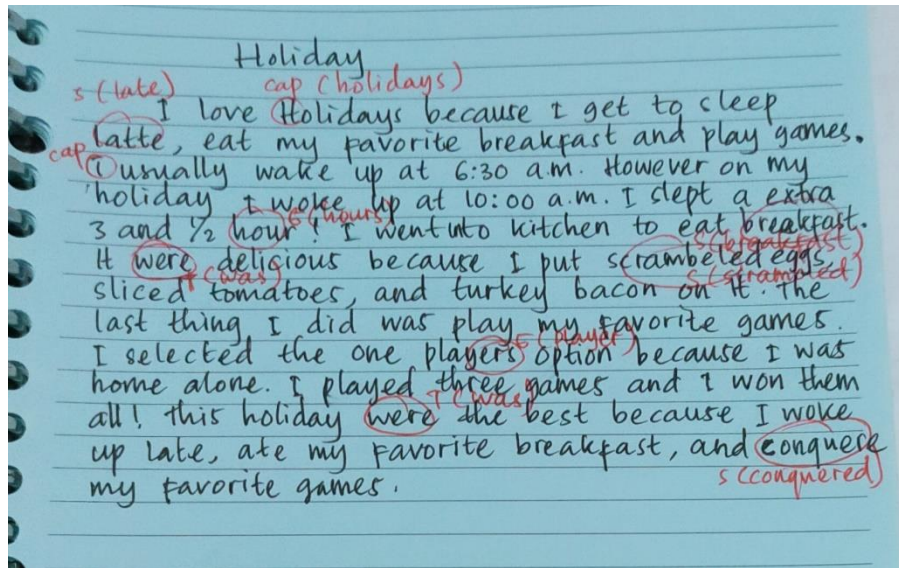 Holiday
s (late) cap (holidays)
I love Holidays because I get to sleep
latte, eat my favorite breakfast and play games.
cap i usually wake up at 6:30 a.m. However on my
holiday I woke up at 10:00 a.m. I slept a extra
3 and 1/2 hour! I went into kitchen to eat breakfast.
G (hours) S (breakfast)
It were delicious because I put scrambeled eggs,
T (was) S (scrambled)
sliced tomatoes, and turkey bacon on it. The
last thing I did was play my favorite games.
I selected the one players option because I was
G (player)
home alone. I played three games and I won them
T (was)
all! this holiday were the best because I woke
up late, ate my favorite breakfast, and conquere
my favorite games.
s (conquered)